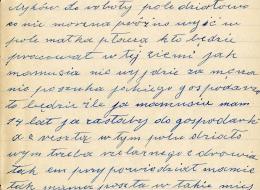 do roboty pole działowo
co nie można późno wyść w
pole matka płacze kto będzie
pracować w tej ziemi jak
mamusia nie wyjdzie za męża
nie poszuka jakiego gospodarza
to będzie źle ja mamusiu mam
14 lat ja zarobię do gospodarki
a z resztą w tym polu działo
wym trzeba żelaznego z drowia
tak em przypowiedział mamie
tak mama poszła w takie miej